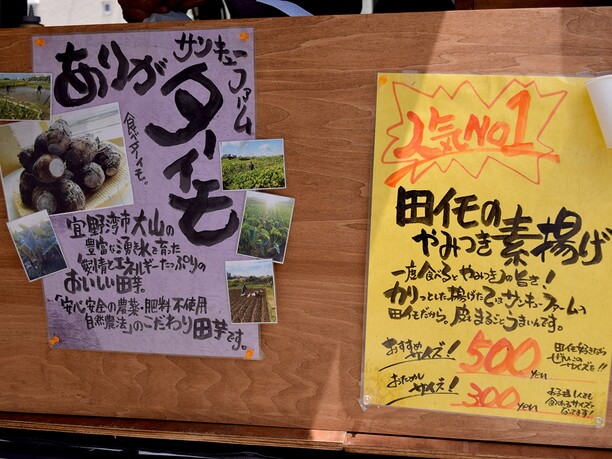 サンキューファーム
ありが
ターイモ
食べターイモ。
宜野湾市大山の
豊富な湧き水で育った
愛情とエネルギーたっぷりの
おいしい田芋。
「安心安全の農薬・肥料不使用
自然農法」のこだわり田芋です。
人気NO1
田イモの
やみつき素揚げ
一度食べるとやみつきの旨さ!
カリっとした揚げたてはサンキューファームの
田イモだから。皮ごとまるごとうまいんです。
おすすめサイズ!
500yen
田イモ好きなら
ぜひこの
サイズを!!
おためしサイズ!
300yen